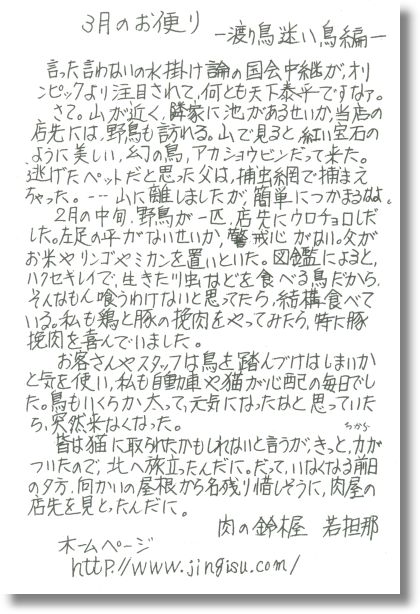 3月のお便り
ー渡り鳥迷い鳥編ー
言った言わないの水掛け論の国会中継が、オリ
ンピックより注目されて、何とも天下泰平ですなァ。
さて。山が近く、隣家に池があるせいか、当店の
店先には、野鳥も訪れる。山で見ると、紅い宝石の
ように美しい、幻の鳥、アカショウビンだって来た。
逃げたペットだと思った父は、捕虫網で捕まえ
ちゃった。---山に離しましたが、簡単につかまるなよ。
2月の中旬、野鳥が一匹、店先にウロチョロしだ
した。左足の平がないせいか、警戒心がない。父が
お米やリンゴやミカンを置いといた。図鑑によると、
ハクセキレイで、生きたり虫などを食べる鳥だから、
そんなもん喰うわけないと思ってたら、結構食べて
いる。私も鶏と豚の挽肉をやってみたら、特に豚
挽肉を喜んでいました。
お客さんやスタッフは鳥を踏んづけはしまいか
と気を使い、私も自動車や猫が心配の毎日でし
た。鳥もいくらか太って、元気になったなと思っていた
ら、突然来なくなった。
皆は猫に取られたかもしれないと言うが、きっと、力(ちから)が
ついたので、北へ旅立ったんだに。だって、いなくなる前日
の夕方、向かいの屋根から名残り惜しそうに、肉屋の
店先を見とったんだに。
肉の鈴木屋 若担那
ホームページ
http://www.jingisu.com/